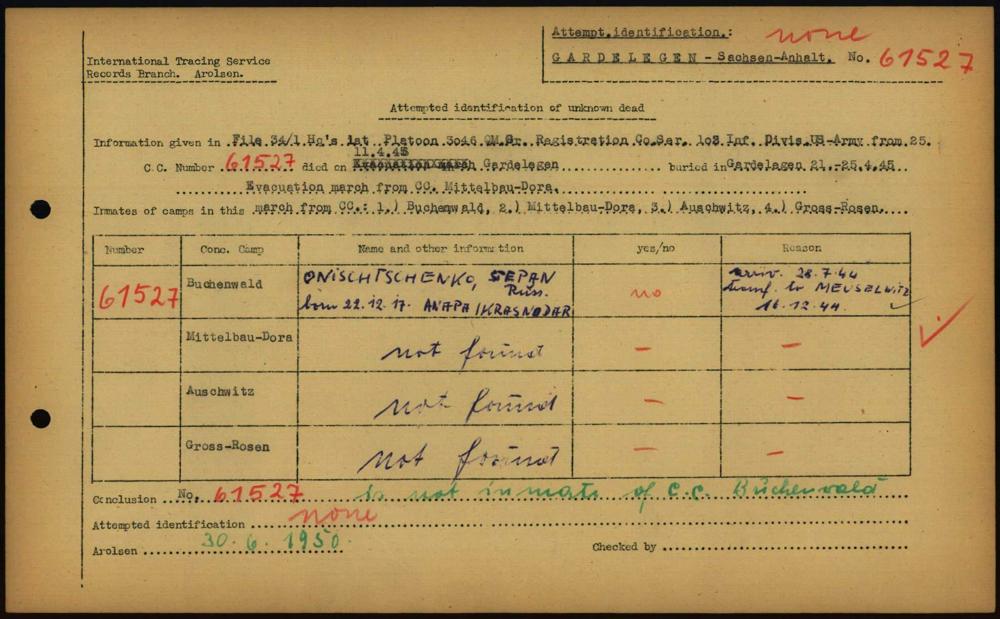 Attempt.identification.: none
GARDELEGEN - Sachsen-Anhalt. No. 61527
International Tracing Service
Records Branch. Arolsen.
Attempted identification of unknown dead
Information given in File 34/1 Hq's 1st Platoon 3046 QM.Gr. Registration Co.Ser. 103 Inf. Divis.US-Army from 25.
11.4.45
C.C. Number 61527 died on Gardelegen buried in Gardelegen 21.-25.4.45
Evacuation march from CC. Mittelbau-Dora.
Inmates of camps in this march from CC.: 1.) Buchenwald, 2.) Mittelbau-Dora, 3.) Auschwitz, 4.) Gross-Rosen.
Number Conc. Camp Name and other information yes/no Reason
61527 Buchenwald ONISCHTSCHENKO, STEPAN Russ. born 22.12.17. ANAPA/KRASNODAR no arriv. 28.7.44 transf. to MEUSELWITZ 16.12.44
Mittelbau-Dora not found - -
Auschwitz not found - -
Gross-Rosen not found - -
Conclusion No. 61527 is not inmate of C.C. Buchenwald
Attempted identification none
Arolsen 30.6.1950. Checked by